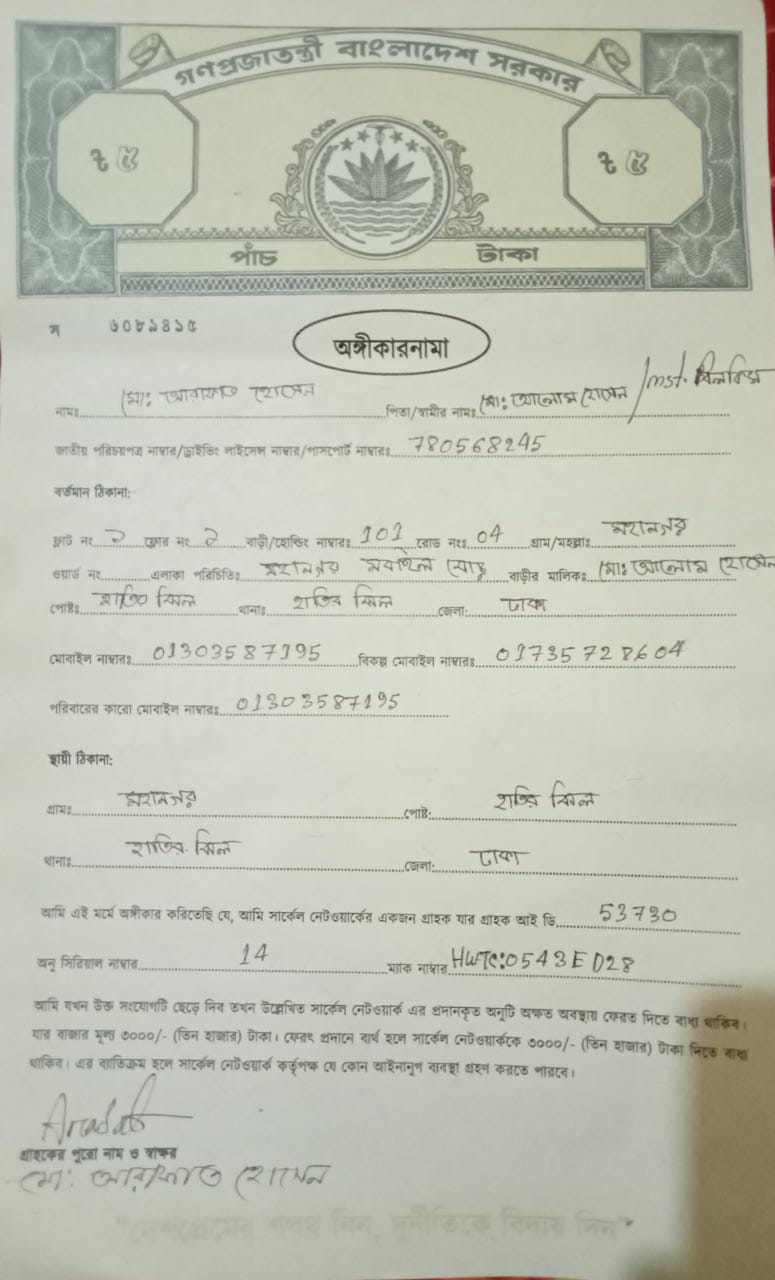 গণপ্রজাতন্ত্রী বাংলাদেশ সরকার
৳ ৫ ৳ ৫
পাঁচ টাকা
ন ৬০৮১৪১৫
অঙ্গীকারনামা
নামঃ মোঃ আরাফাত হোসেন পিতা/স্বামীর নামঃ মোঃ আলোম হোসেন /mst. বিলকিস
জাতীয় পরিচয়পত্র নাম্বার/ড্রাইভিং লাইসেন্স নাম্বার/পাসপোর্ট নাম্বারঃ 780568245
বর্তমান ঠিকানা:
ফ্লাট নং ২ ফ্লোর নং ২ বাড়ী/হোল্ডিং নাম্বারঃ 101 রোড নংঃ 04 গ্রাম/মহল্লাঃ মহানগর
ওয়ার্ড নং এলাকা পরিচিতিঃ মহানগর বাড়ীর মালিকঃ মোঃ আলোম হোসেন
পোষ্টঃ হাতির ঝিল থানাঃ হাতির ঝিল জেলা: ঢাকা
মোবাইল নাম্বারঃ 01303587195 বিকল্প মোবাইল নাম্বারঃ 01735728604
পরিবারের কারো মোবাইল নাম্বারঃ 01303587195
স্থায়ী ঠিকানা:
গ্রামঃ মহানগর পোষ্ট: হাতির ঝিল
থানাঃ হাতির ঝিল জেলা: ঢাকা
আমি এই মর্মে অঙ্গীকার করিতেছি যে, আমি সার্কেল নেটওয়ার্কের একজন গ্রাহক যার গ্রাহক আই ডি 53730
অনু সিরিয়াল নাম্বার 14 ম্যাক নাম্বার HWTC:0543ED28
আমি যখন উক্ত সংযোগটি ছেড়ে দিব তখন উল্লেখিত সার্কেল নেটওয়ার্ক এর প্রদানকৃত অনুটি অক্ষত অবস্থায় ফেরত দিতে বাধ্য থাকিব।
যার বাজার মূল্য ৩০০০/- (তিন হাজার) টাকা। ফেরৎ প্রদানে ব্যর্থ হলে সার্কেল নেটওয়ার্ককে ৩০০০/- (তিন হাজার) টাকা দিতে বাধ্য
থাকিব। এর ব্যতিক্রম হলে সার্কেল নেটওয়ার্ক কর্তৃপক্ষ যে কোন আইনানুগ ব্যবস্থা গ্রহণ করতে পারবে।
Arafat
গ্রাহকের পুরো নাম ও স্বাক্ষর
মো: আরাফাত হোসেন
"দেশপ্রেমের শপথ নিন, দুর্নীতিকে বিদায় দিন"